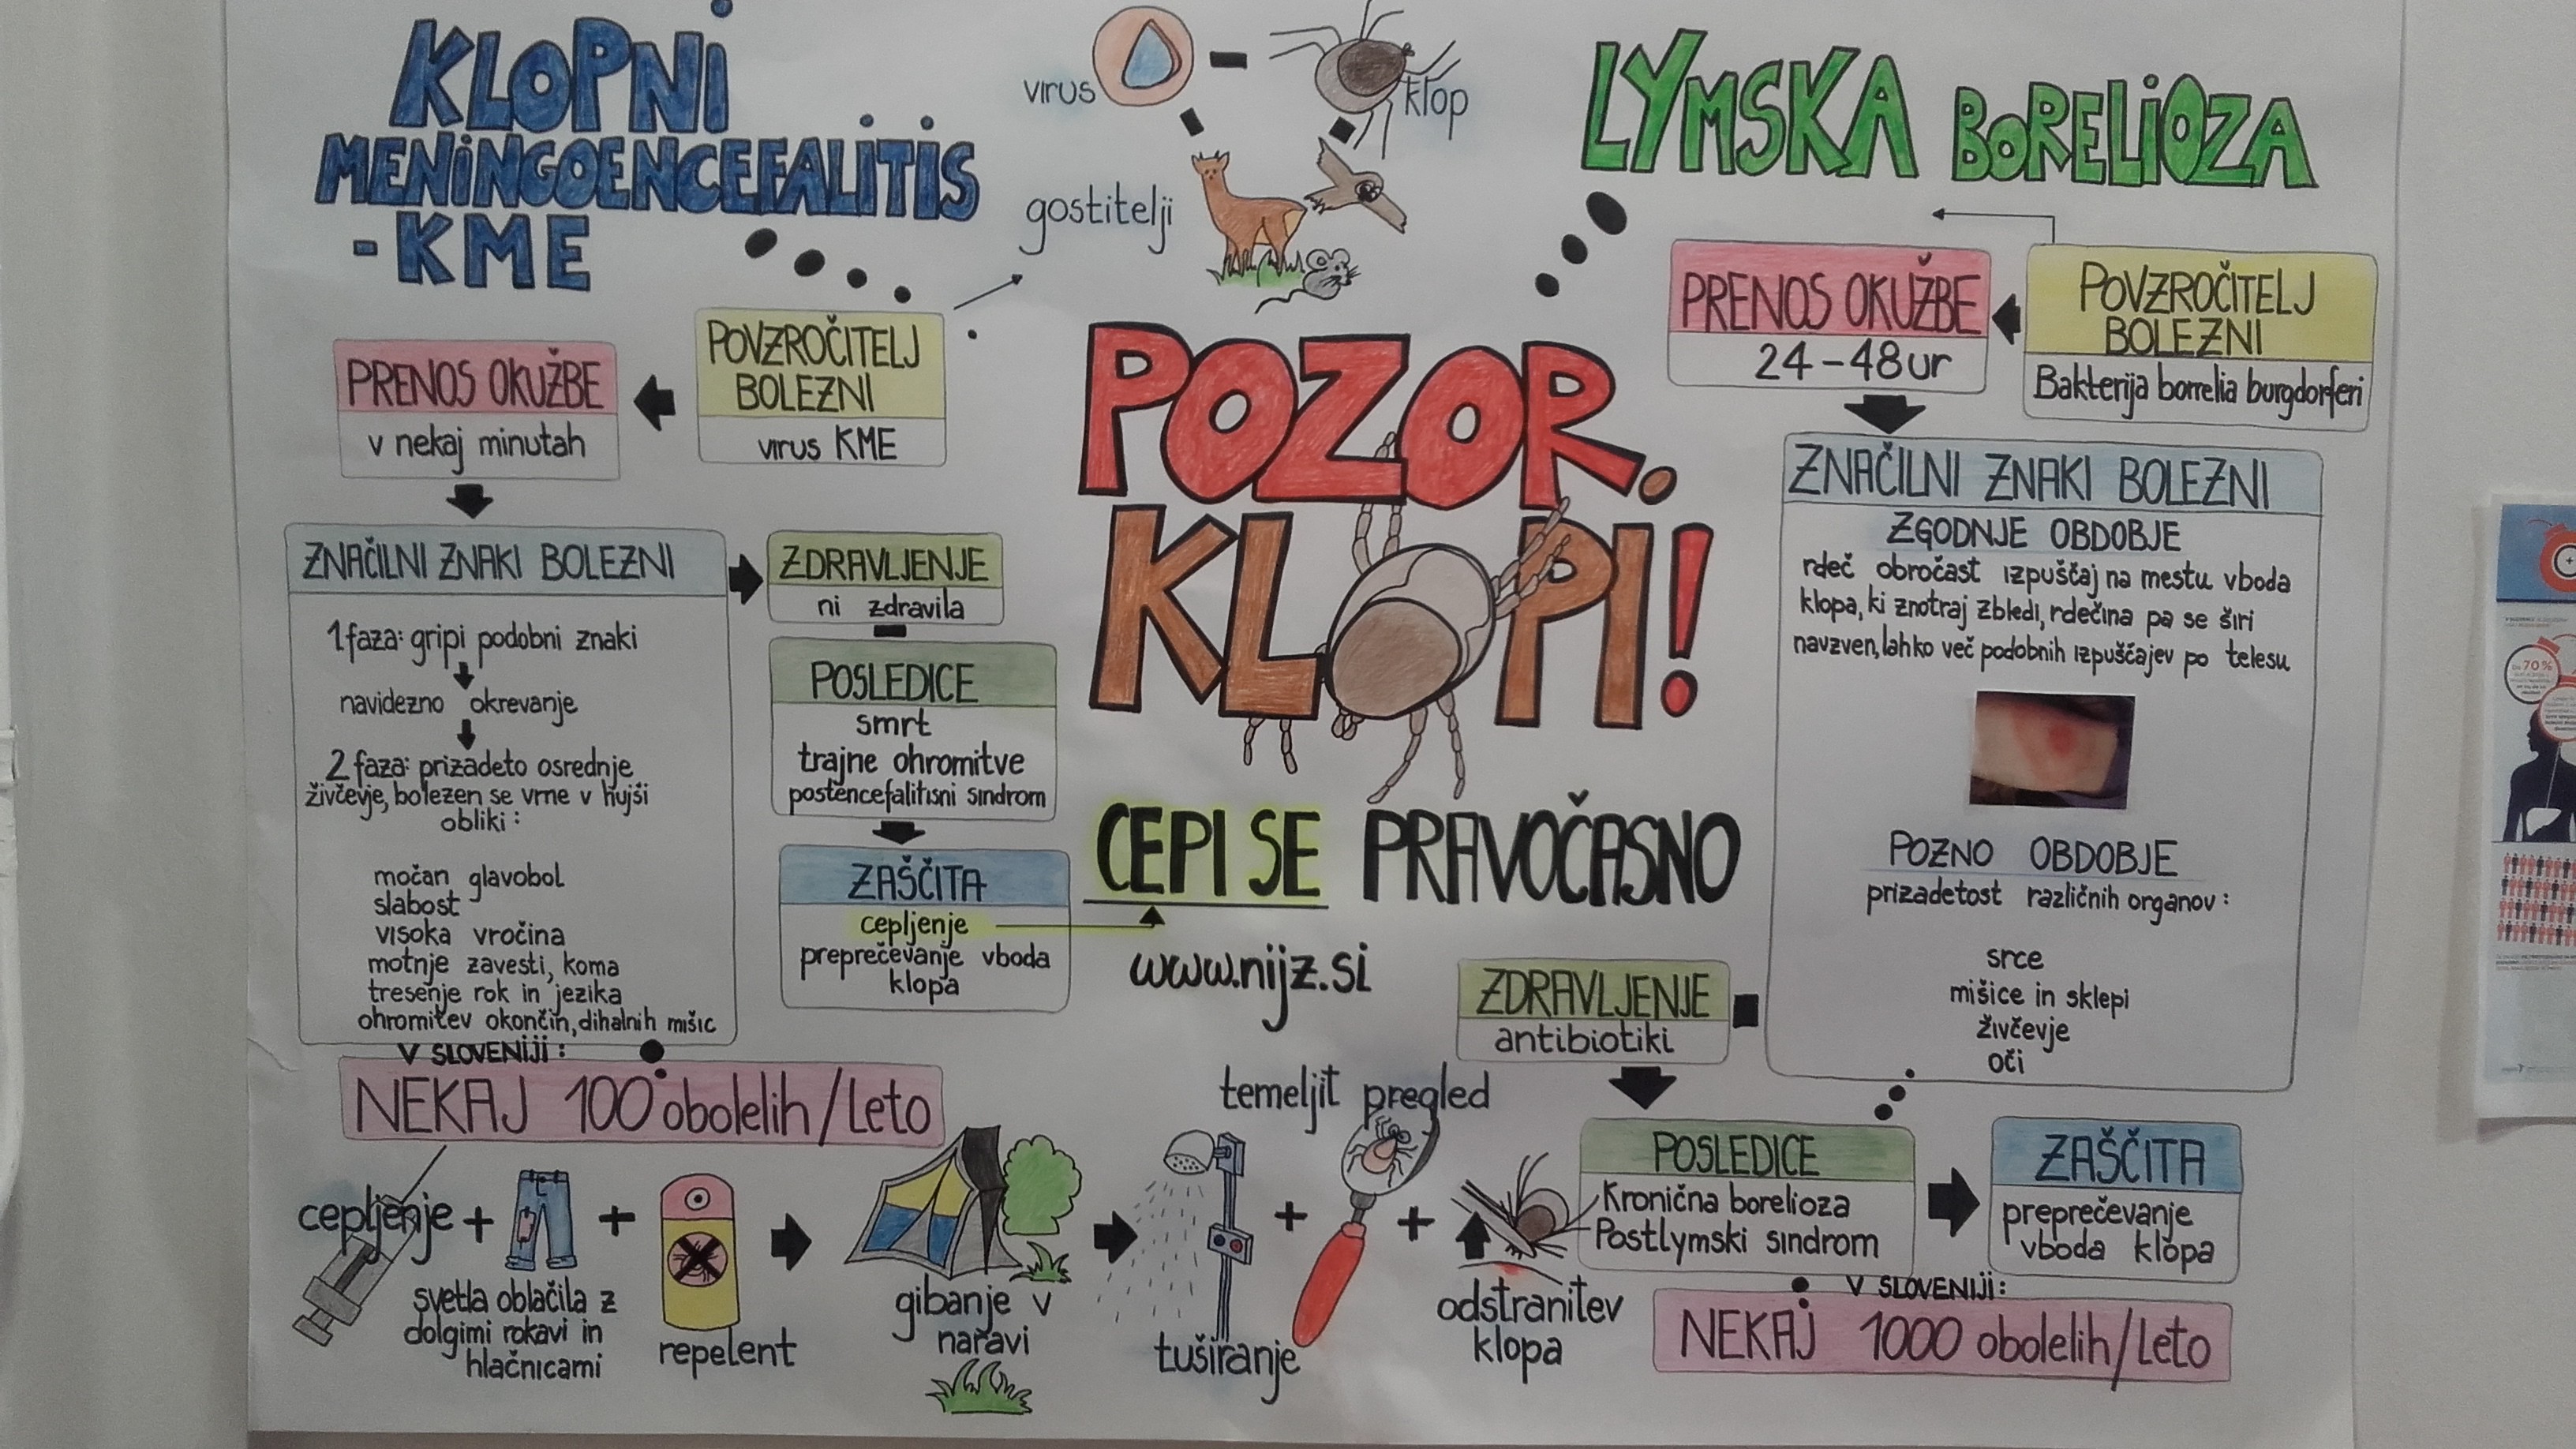 KLOPNI
MENINGOENCEFALITIS
-KME
virus
klop
gostitelji
LYMSKA BORELIOZA
POVZROČITELJ
BOLEZNI
virus KME
PRENOS OKUŽBE
v nekaj minutah
ZNAČILNI ZNAKI BOLEZNI
1.faza: gripi podobni znaki
navidezno okrevanje
2 faza: prizadeto osrednje
živčevje, bolezen se vrne v hujši
obliki:
močan glavobol
slabost
visoka vročina
motnje zavesti, koma
tresenje rok in jezika
ohromitev okončin, dihalnih mišic
ZDRAVLJENJE
ni zdravila
POSLEDICE
smrt
trajne ohromitve
postencefalitisni sindrom
ZAŠČITA
cepljenje
preprečevanje vboda
klopa
V SLOVENIJI:
NEKAJ 100 obolelih/Leto
POZOR.
KLOPI!
CEPI SE PRAVOČASNO
www.nijz.si
POVZROČITELJ
BOLEZNI
Bakterija borrelia burgdorferi
PRENOS OKUŽBE
24-48ur
ZNAČILNI ZNAKI BOLEZNI
ZGODNJE OBDOBJE
rdeč obročast izpuščaj na mestu vboda
klopa, ki znotraj zbledi, rdečina pa se širi
navzven, lahko več podobnih izpuščajev po telesu
POZNO OBDOBJE
prizadetost različnih organov:
srce
mišice in sklepi
živčevje
oči
ZDRAVLJENJE
antibiotiki
POSLEDICE
Kronična borelioza
Postlymski sindrom
ZAŠČITA
preprečevanje
vboda klopa
V SLOVENIJI:
NEKAJ 1000 obolelih/Leto
cepljenje +
svetla oblačila z
dolgimi rokavi in
hlačnicami
+
repelent
gibanje v
naravi
tuširanje
+
temeljit pregled
+
odstranitev
klopa
70%